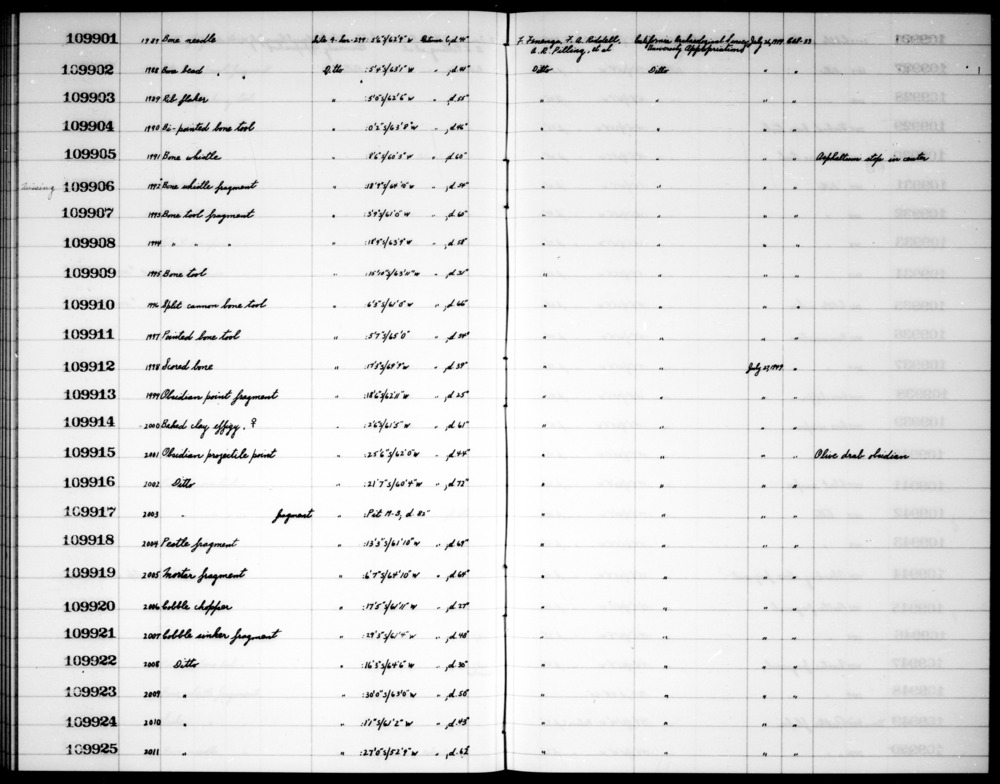 109901 1987 Bone needle F. Fenenga, F. A. Riddell, A. R. Pilling, et al California Archaeological Survey (University Appropriations) July 26, 1949
109902 1988 Bone bead " " Ditto :5'4"S/65'1"W " , d. 41" Ditto Ditto " "
109903 1989 Rib flaker " :5'0"S/62'6"W " , d. 55" " " " "
109904 1990 Bi-pointed bone tool " :0'2"S/63'8"W " , d. 46" " " " "
109905 1991 Bone whistle " " , d. 60" " " " " Asphaltum stop in center
missing 109906 1992 Bone whistle fragment " " " " " "
109907 1993 Bone tool fragment " :5'9"S/61'0"W " , d. 60" " " " "
109908 1994 " " " " :18'9"S/63'9"W " , d. 58" " " " "
109909 1995 Bone tool " :15'10"S/63'11"W " , d. 31" " " " "
109910 1996 Split cannon bone tool " :6'5"S/61'0"W " , d. 66" " " " "
109911 1997 Pointed bone tool " :5'7"S/65'0" " " " " "
109912 1998 Scored bone " :17'5"S/69'9"W " , d. 39" " " July 27, 1949 "
109913 1999 Obsidian point fragment " :18'6"S/62'11"W " , d. 25" " " " "
109914 2000 Baked clay effigy. ♀ " :2'6"S/61'5"W " , d. 61" " " " "
109915 2001 Obsidian projectile point " :25'6"S/62'0"W " , d. 44" " " " " Olive drab obsidian
109916 2002 Ditto " :21'7"S/60'4"W " , d. 72" " " " "
109917 2003 " fragment " :Pit M-3, d. 82" " " " "
109918 2004 Pestle fragment " :13'3"S/61'10"W " , d. 69" " " " "
109919 2005 Mortar fragment " :6'7"S/64'10"W " , d. 64" " " " "
109920 2006 Cobble chopper " :17'5"S/61'11"W " , d. 27" " " " "
109921 2007 Cobble sinker fragment " :29'5"S/61'4"W " , d. 48" " " " "
109922 2008 Ditto " :16'5"S/64'6"W " , d. 30" " " " "
109923 2009 " " :30'0"S/63'0"W " , d. 50" " " " "
109924 2010 " " :1'1"S/61'2"W " , d. 45" " " " "
109925 2011 " " :27'0"S/52'9"W " , d. 62" " " " "